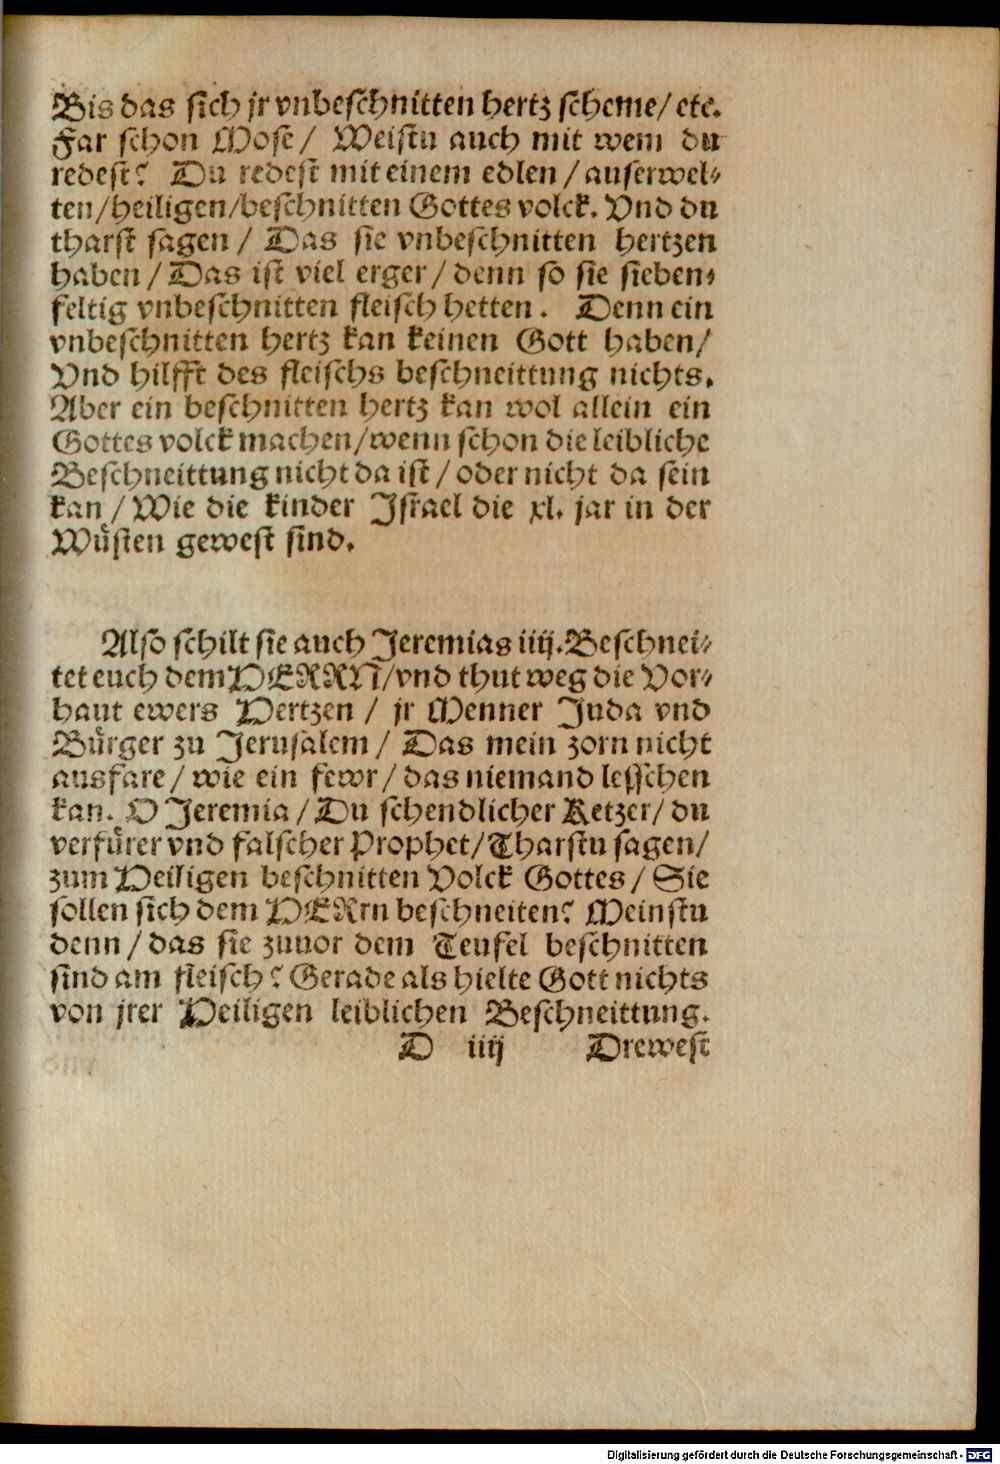 Bis das sich jr vnbeschnitten hertz scheme/ etc.
Far schon Mose/ Weistu auch mit wem du
redest? Du redest mit einem edlen/ auserwel-
ten/heiligen/beschnitten Gottes volck. Vnd du
tharst sagen/ Das sie vnbeschnitten hertzen
haben/ Das ist viel erger/ denn so sie sieben-
feltig vnbeschnitten fleisch hetten. Denn ein
vnbeschnitten hertz kan keinen Gott haben/
Vnd hilfft des fleischs beschneittung nichts.
Aber ein beschnitten hertz kan wol allein ein
Gottes volck machen/wenn schon die leibliche
Beschneittung nicht da ist/ oder nicht da sein
kan/ Wie die kinder Israel die xl. jar in der
Wüsten gewest sind.
Also schilt sie auch Jeremias iiij. Beschnei-
tet euch dem HERRN/vnd thut weg die Vor-
haut ewers Hertzen/ jr Menner Juda vnd
Bürger zu Jerusalem/ Das mein zorn nicht
ausfare/ wie ein fewr/ das niemand lesschen
kan. O Jeremia/ Du schendlicher Ketzer/ du
verfürer vnd falscher Prophet/ Tharstu sagen/
zum Heiligen beschnitten Volck Gottes/ Sie
sollen sich dem HERrn beschneiten? Meinstu
denn/ das sie zuuor dem Teufel beschnitten
sind am fleisch? Gerade als hielte Gott nichts
von jrer Heiligen leiblichen Beschneittung.
D iiij Drewest
Digitalisierung gefördert durch die Deutsche Forschungsgemeinschaft - DFG